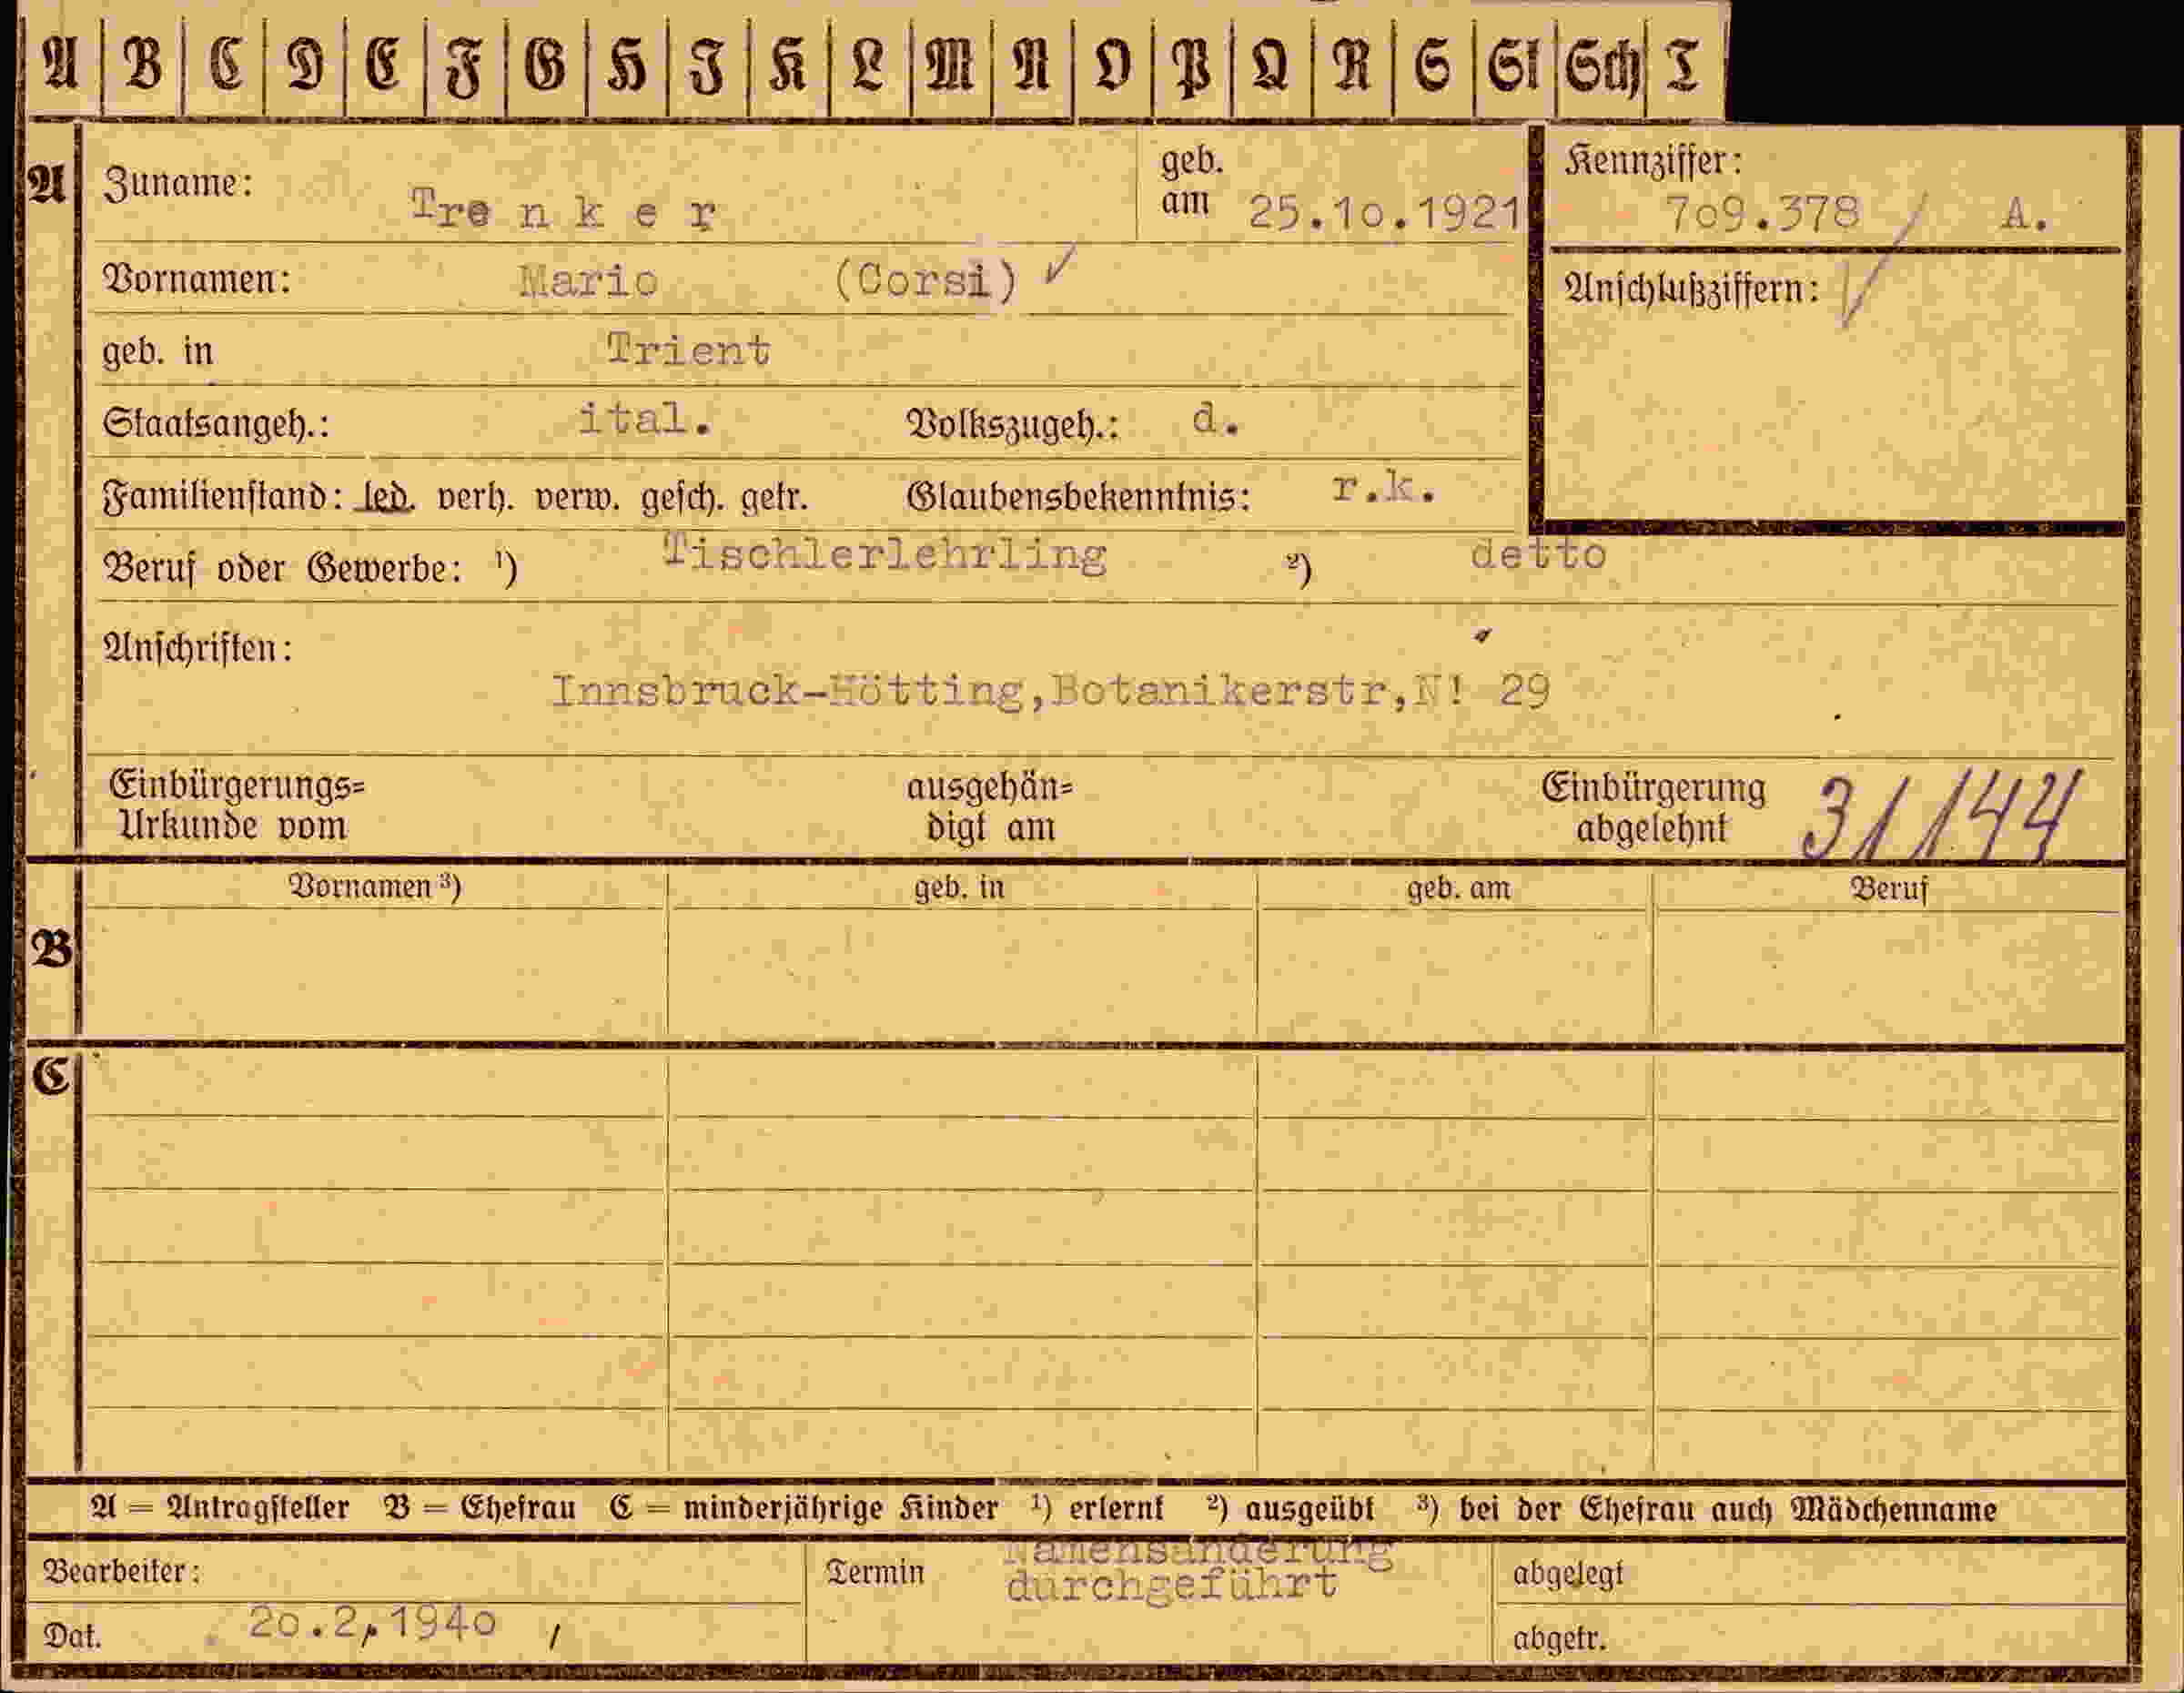 A B C D E F G H I K L M N O P Q R S St Sch T
A Zuname: Trenker geb. am 25.10.1921 Kennziffer: 709.378 / A.
Vornamen: Mario (Corsi) ✓ Anschlußziffern:
geb. in Trient
Staatsangeh.: ital. Volkszugeh.: d.
Familienstand: led. verh. verw. gesch. getr. Glaubensbekenntnis: r.k.
Beruf oder Gewerbe: ¹) Tischlerlehrling ²) detto
Anschriften:
Innsbruck-Hötting,Botanikerstr,N! 29
Einbürgerungs= ausgehän= Einbürgerung
Urkunde vom digt am abgelehnt
Vornamen ³) geb. in geb. am Beruf
B
C
A = Antragsteller B = Ehefrau C = minderjährige Kinder ¹) erlernt ²) ausgeübt ³) bei der Ehefrau auch Mädchenname
Bearbeiter: Termin Namensänderung abgelegt
durchgeführt
Dat. 20.2.1940 abgetr.